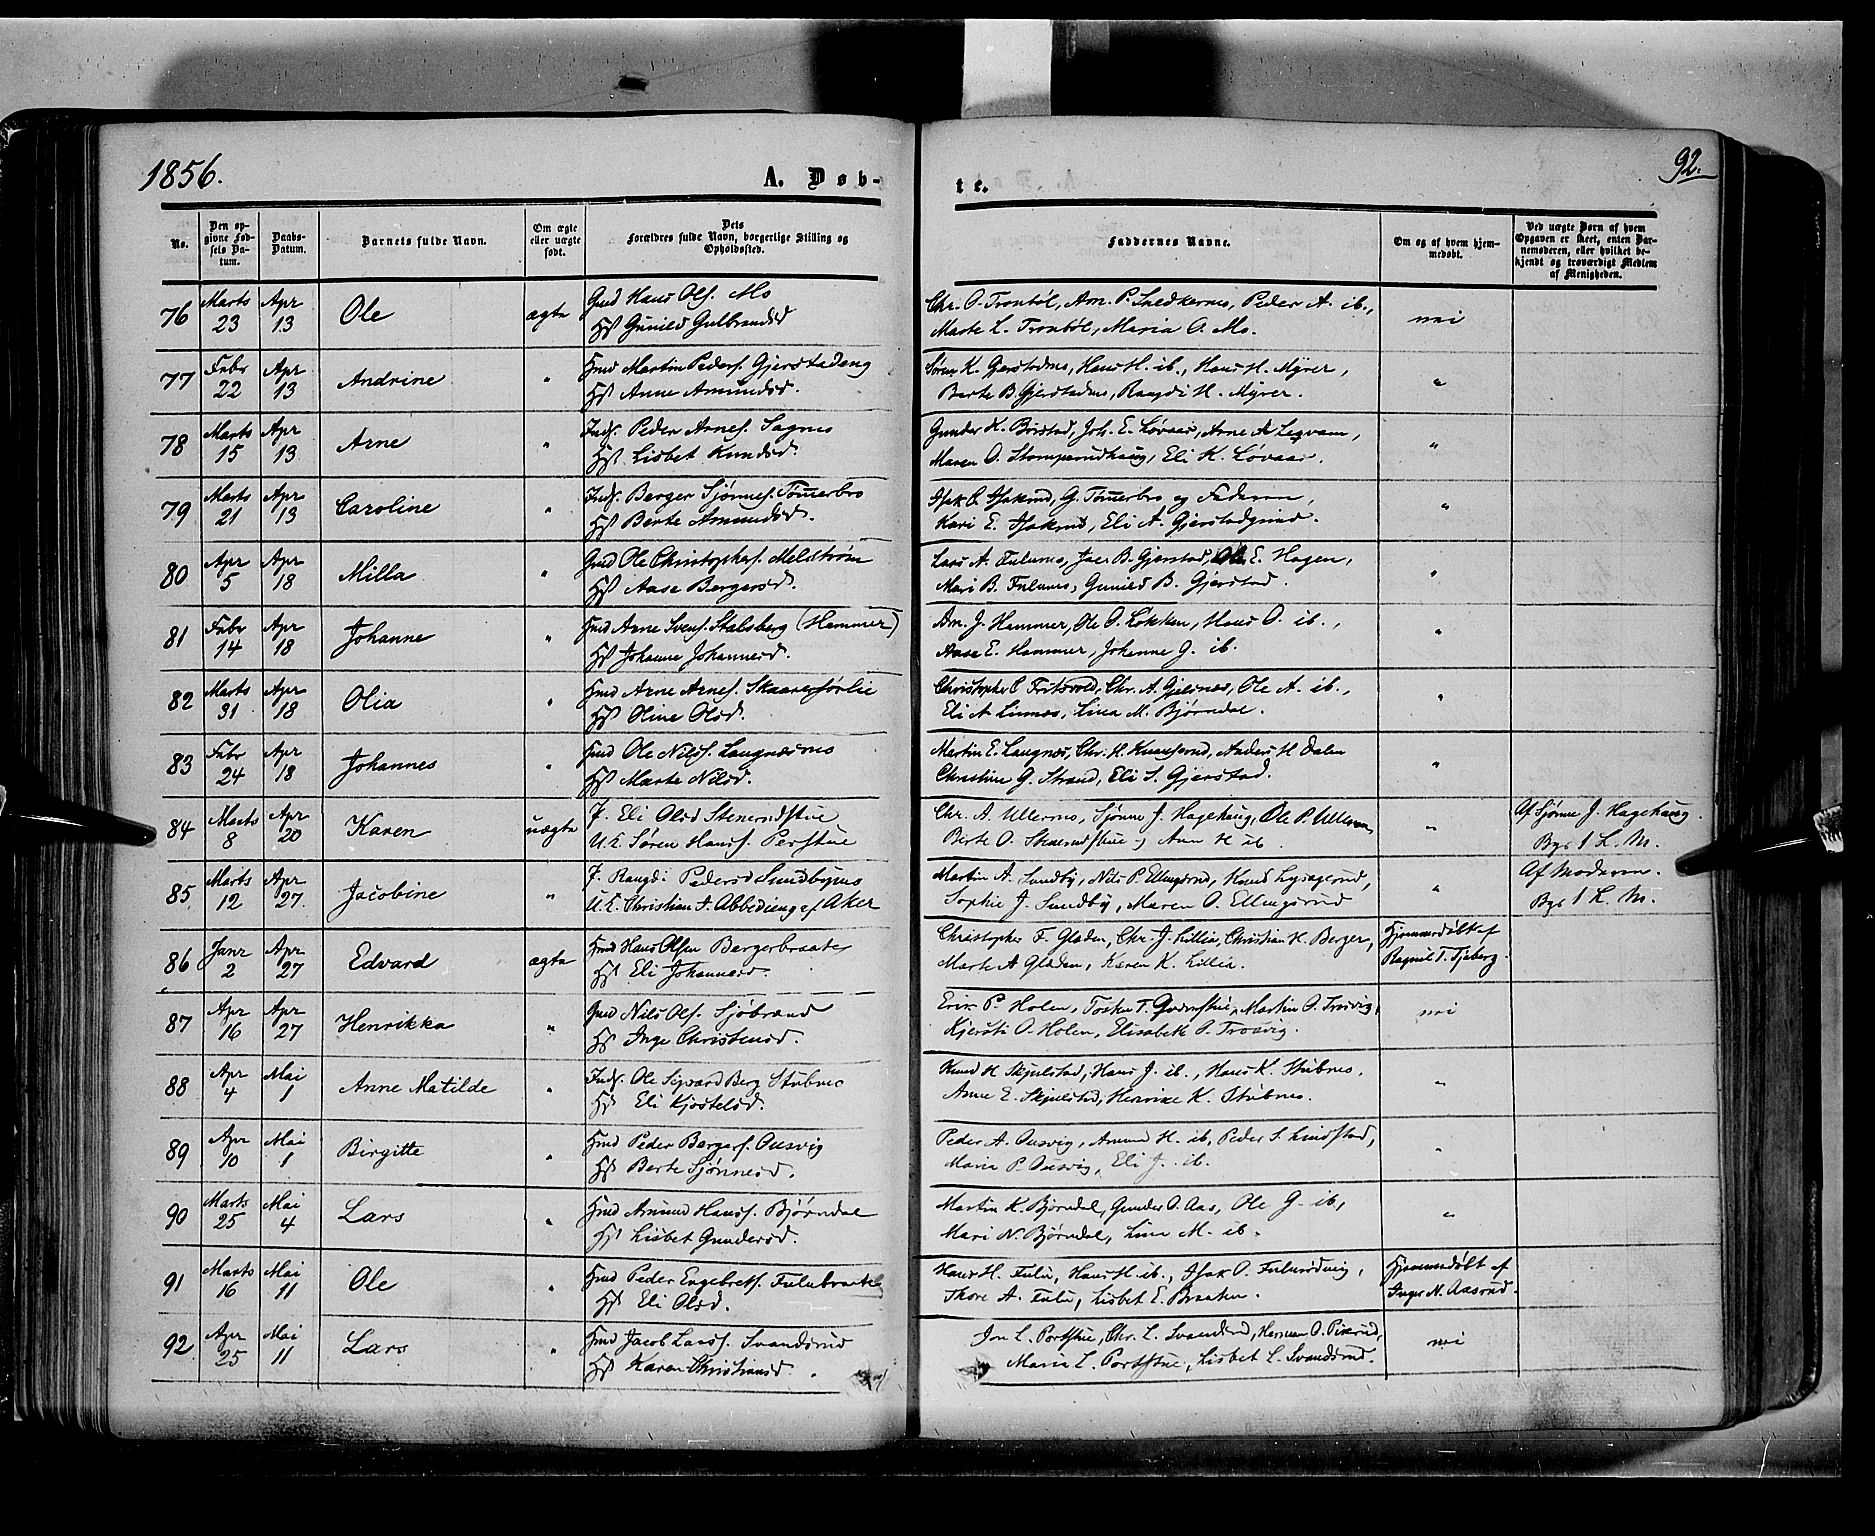 1856.
A. Døb-
te.
92.
No.
Den op-
givne Fød-
sels Da-
tum.
Daabs-
Datum.
Barnets fulde Navn.
Om ægte
eller uægte
født.
Dets
Forældres fulde Navn, borgerlige Stilling og
Opholdssted.
Faddernes Navne.
Om og af hvem hjem-
medøbt.
Ved uægte Børn af hvem
Opgaven er skeet, enten Bar-
nemoderen, eller hvilket be-
kjendt og troværdigt Medlem
af Menigheden.
76 Marts 23 Apr 13 Ole ægte
Gmd Hans Olsf. Mo
Hst Gunild Gulbrandsd
Chr. O. Trontöl, Am. P. Snedkernes, Peder A. ib.,
Marte L. Trontöl, Maria O. Mo.
nei
77 Febr 22 Apr 13 Andrine "
Hmd Martin Pedersf. Gjerstadeng
Hst Anne Amundsd.
Søren K. Gjerstadnes, Hans H. ib., Hans H. Myrer,
Berte B. Gjerstadnes, Rangdi H. Myrer.
"
78 Marts 15 Apr 13 Arne "
Inds. Peder Arnesf. Sagnes
Hst. Lisbet Knudsd.
Gunder K. Börstad, Joh. E. Lövaas, Arne A.
Maren O. Stomperudhaug, Eli K. Lövaas.
"
79 Marts 21 Apr 13 Caroline "
Inds. Berger Sjønnesf. Tömerbro
Hst Berte Amundsd.
Isak O. Isakrud, G. Tömerbro og Faderen,
Kari E. Isakrud, Eli A. Gjerstadgrind.
"
80 Apr 5 Apr 18 Milla "
Gmd Ole Christophersf. Melström
Hst Aase Bergersd.
Lars A. Fulunes, Joer B. Gjerstad, Ole E. Hagen,
Mari B. Fulunes, Gunild B. Gjerstad.
"
81 Febr 14 Apr 18 Johanne "
Hmd Arne Svensf. Stalsberg (Hammer)
Hst Johanne Johannesd.
Am. J. Hammer, Ole O. Løkken, Hans O. ib.,
Aase E. Hammer, Johanne G. ib.
"
82 Marts 31 Apr 18 Olia "
Hmd Arne Arnesf. Skaaresørlie
Hst Oline Olsd.
Christopher C Fritsvold, Chr. A. Gjelsnes, Ole A. ib.,
Eli A. Linnes, Lina M. Bjørndal.
"
83 Febr 24 Apr 18 Johannes "
Hmd Ole Nilsf. Langnesnes
Hst Marte Nilsd.
Martin E. Langnes, Chr. H. Knaiserud, Anders H Dalen
Christine G. Strand, Eli S. Gjerstad.
"
84 Marts 8 Apr 20 Karen uægte
P. Eli Olsd Stenerudstue
U.K. Søren Hansf. Perstue
Chr. A. Ullernes, Sjønne J. Hagehaug, Ole P. Ullern
Berte O. Stenerudstue og Ann H ib.
"
Af Sjønne J. Hagehaug.
Byr 1 L. M.
85 Marts 12 Apr 27 Jacobine "
P. Rangdi Pedersd Sundbynes
U.K. Christian J. Abbedieng af Aker
Martin A. Sundby, Nils P. Ellingsrud, Knud Lysagerud,
Sophie J. Sundby, Maren O. Ellingsrud
"
Af Moderen.
Byr 1 L. M.
86 Janr 2 Apr 27 Edvard ægte
Hmd Hans Olsen Bergerbraate
Hst Eli Johannesd.
Christopher F. Gladen, Chr. J. Lillia, Christian H. Berger,
Marte A Gladen, Karen K. Lillia.
Hjemmedøbt af
Ragnil T. Tjeberg.
87 Apr 16 Apr 27 Henrikka "
Gmd Nils Olsf. Sjöbrænd
Hst Inge Christensd.
Erik P. Holen, Tosten T. Gudestue, Martin O. Trosvig,
Kjersti O. Holen, Elisabeth P. Trosvig.
nei
88 Apr 4 Mai 1 Anne Matilde "
Inds. Ole Sigvard Berg Stubnes
Hst Eli Kjostelsd.
Knud H Skjulstad, Hans J. ib., Hans K. Stubnes,
Anne E. Skjulstad, Henrikke K. Stubnes.
"
89 Apr 10 Mai 1 Birgitte "
Hmd Peder Bergersf. Ousvig
Hst Berte Sjønnesd.
Peder A. Ousvig, Amund H. ib, Peder S. Lindstad,
Maria P. Ousvig, Eli J. ib.
"
90 Marts 25 Mai 4 Lars "
Hmd Amund Hansf. Bjørndal
Hst Lisbet Gundersd.
Martin K. Bjørndal, Gunder O. Aas, Ole G. ib,
Mari N. Bjørndal, Lina M. ib.
"
91 Marts 16 Mai 11 Ole "
Hmd Peder Engebretsf. Fulubraaten
Hst Eli Olsd.
Hans H. Fulu, Hans H. ib., Isak O. Fulurødning,
Thore A. Fulu, Lisbet E. Braaten.
Hjemmedøbt af
Inger N. Aasrud.
92 Apr 25 Mai 11 Lars "
Hmd Jacob Larsf. Svandsrud
Hst Karen Christiansd.
Jon L. Portstue, Chr. L. Svandsrud, Herman O. Pixrud,
Maria L. Portstue, Lisbet L. Svandsrud.
nei